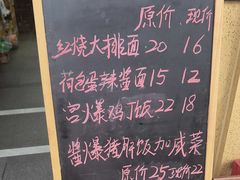 原价 现价
红烧大排面 20 16
荷包蛋辣酱面 15 12
宫爆鸡丁饭 22 18
酱爆猪肝饭加咸菜
原价25现价22